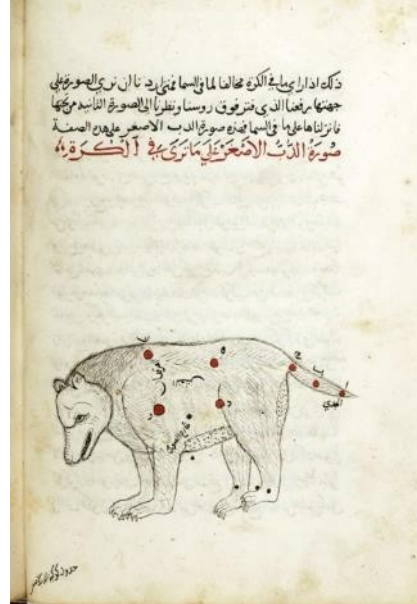 ذلك اذا راى ما فى الكرة مخالفا لما فى السما فمتى اردنا ان نرى الصورة على
جهتها رفعنا الذى فتر فوق روسنا ونظرنا الى الصورة الثانية من تحتها
فانزلناها على ما فى السما فهذه صورة الدب الاصغر على هذه الصفة
صورة الدب الاصغر على ما ترى فى الكرة
الفرقدان
خارج الصورة
الجدي